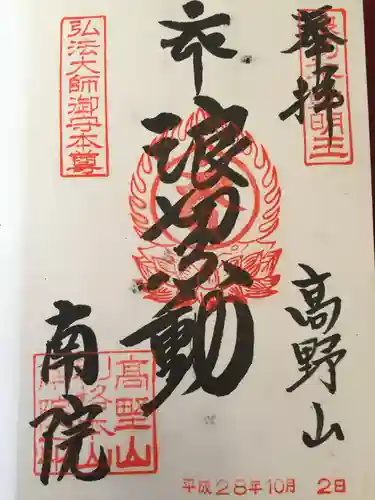 奉拝
高野山
浪切不動
南院
弘法大師御守本尊
高野山
平成28年10月 2日